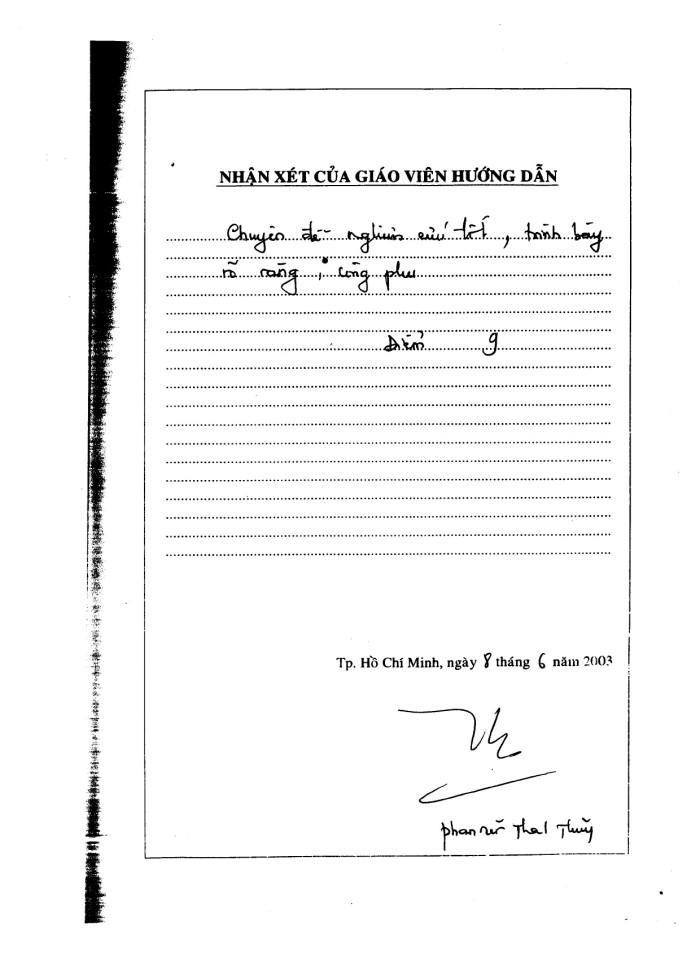 NHẬN XÉT CỦA GIÁO VIÊN HƯỚNG DẪN
Chuyên đề nghiên cứu tốt, trình bày
rõ ràng, công phu
Điểm 9
Tp. Hồ Chí Minh, ngày 8 tháng 6 năm 2003
Phan Thal Thủy